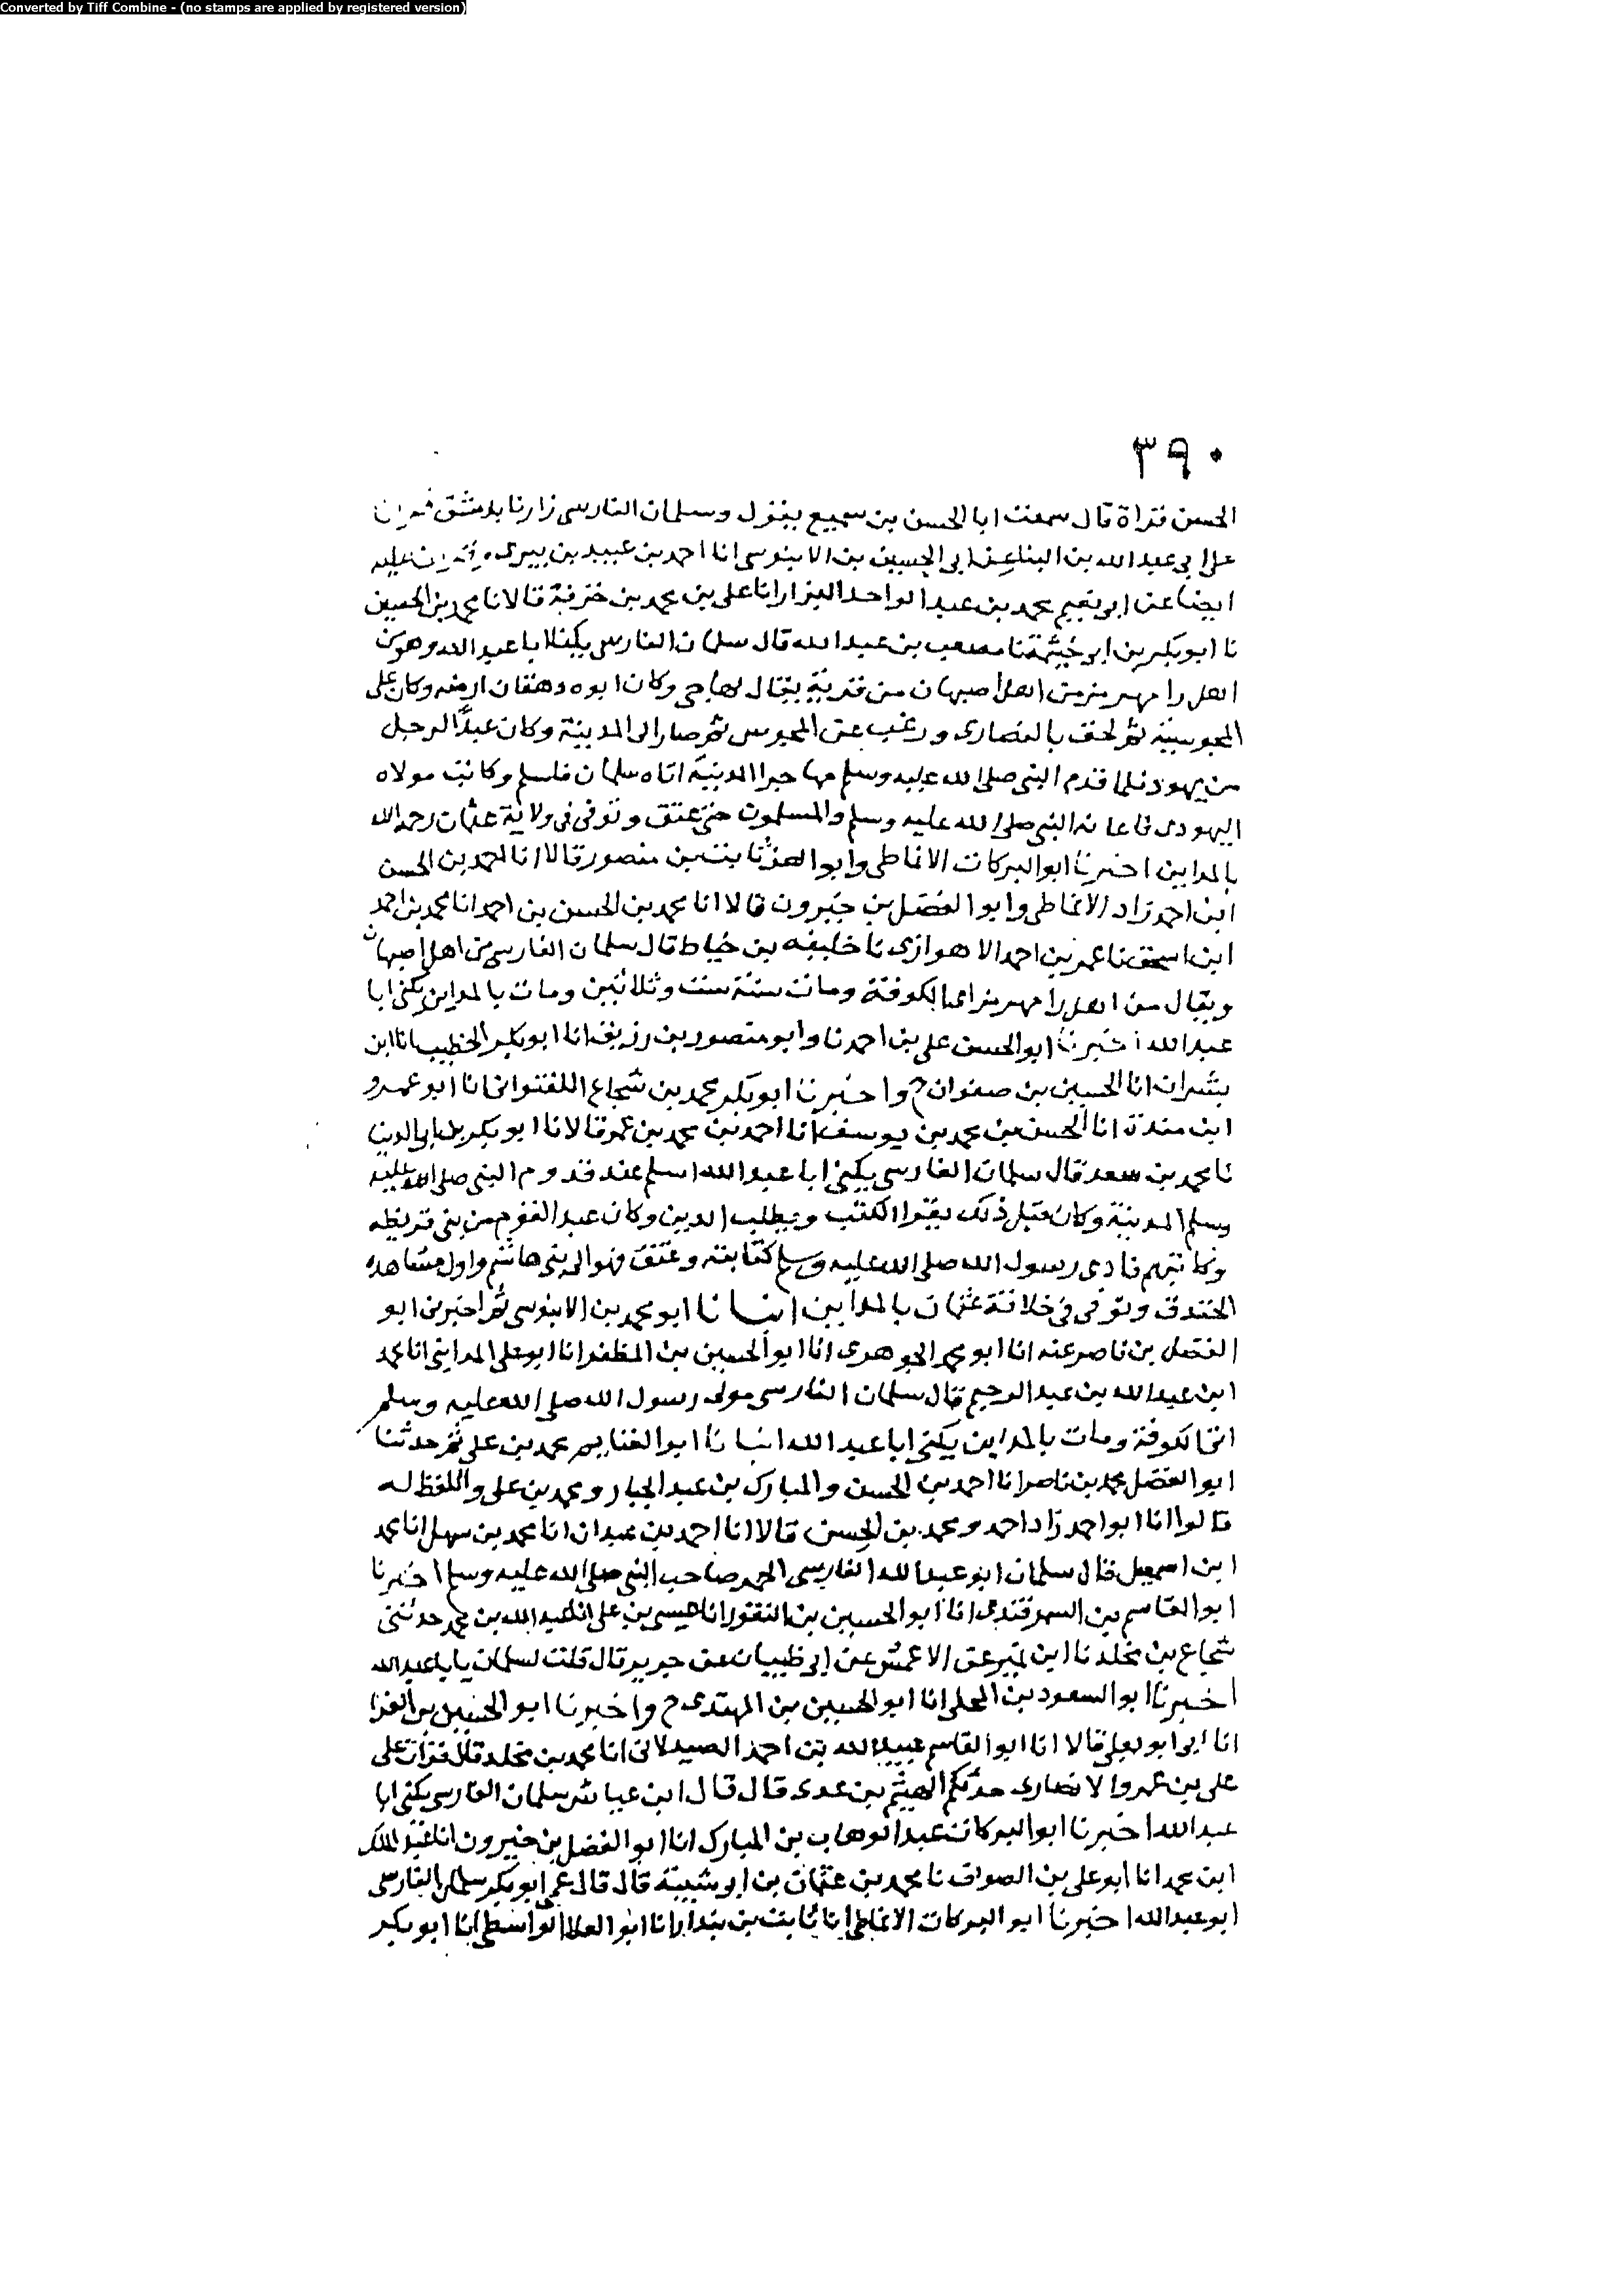 Converted by Tiff Combine - (no stamps are applied by registered version)
٣٩٠
الحسن قراة قال سمعت ابا الحسن بن سميع يقول وسلمان الفارسى زارنا بدمشق
على ابى عبد الله بن البنا عن ابى الحسين بن الابنوسى انا احمد بن عبيد بن بيرى عليه
ايضا عن ابى نعيم محمد بن عبد الواحد البزار انا على بن محمد بن خزفة قالا نا محمد بن الحسين
نا ابو بكر بن ابى خيثمة نا مصعب بن عبد الله قال سلمان الفارسى يكنا ابا عبد الله وهو من
اهل رامهرمز من اهل اصبهان من قرية يقال لها جى وكان ابوه دهقان ارضه وكان على
المجوسية ثم لحق بالنصارى ورغب عن المجوس ثم صار الى المدينة وكان عبدا لرجل
من يهود فلما قدم النبى صلى الله عليه وسلم مهاجرا المدينة اتاه سلمان فاسلم وكاتب مولاه
اليهودى فاعانه النبى صلى الله عليه وسلم والمسلمون حتى عتق وتوفى فى ولاية عثمان رحمه الله
بالمداين اخبرنا ابو البركات الانماطى وابو العز ثابت بن منصور قالا انا احمد بن الحسن
ابن احمد زاد الانماطى وابو الفضل بن خيرون قالا انا محمد بن الحسن بن احمد انا محمد بن احمد
ابن اسحق نا عمر بن احمد الاهوازى نا خليفه بن خياط قال سلمان الفارسى من اهل اصبهان
ويقال من اهل رامهرمز اتى الكوفة ومات سنة ست وثلاثين ومات بالمداين يكنى ابا
عبد الله اخبرنا ابو الحسن على بن احمد نا وابو منصور بن زريق انا ابو بكر الخطيب انا ابن
بشران انا الحسين بن صفوان ح واخبرنا ابو بكر محمد بن شجاع اللفتوانى انا ابو عمرو
ابن مندة انا الحسن بن محمد بن يوسف انا احمد بن محمد بن عمر قالا نا ابو بكر بن ابى الدنيا
نا محمد بن سعد قال سلمان الفارسى يكنى ابا عبد الله اسلم عند قدوم النبى صلى الله عليه
وسلم المدينة وكان قبل ذلك يقرا الكتب ويطلب الدين وكان عبدا لقوم من بنى قريظه
وكاتبهم فادى رسول الله صلى الله عليه وسلم كتابته وعتق فهو الى بنى هاشم واول مشاهده
الخندق وتوفى فى خلافة عثمان بالمداين انبانا ابو محمد بن الابنوسى ثم اخبرنى ابو
الفضل بن ناصر عنه انا ابو محمد الجوهرى انا ابو الحسين بن المظفر انا ابو على المداينى انا احمد
ابن عبد الله بن عبد الرحيم قال سلمان الفارسى مولى رسول الله صلى الله عليه وسلم
اتى الكوفة ومات بالمداين يكنى ابا عبد الله انبانا ابو الغنايم محمد بن على ثم حدثنا
ابو الفضل محمد بن ناصر انا احمد بن الحسن والمبارك بن عبد الجبار ومحمد بن على واللفظ له
قالوا انا ابو احمد زاد احمد ومحمد بن الحسن قالا انا احمد بن عبدان انا محمد بن سهل انا محمد
ابن اسمعيل قال سلمان ابو عبد الله الفارسى صاحب النبى صلى الله عليه وسلم اخبرنا
ابو القاسم بن السمرقندى انا ابو الحسين بن النقور انا عيسى بن على انا عبد الله بن محمد حدثنى
شجاع بن مخلد نا ابن نمير عن الاعمش عن ابى ظبيان عن جرير قال قلت لسلمان يا با عبد الله
اخبرنا ابو السعود بن المجلى انا ابو الحسين بن المهتدى ح واخبرنا ابو الحسين بن الفرا
انا ابى ابو يعلى قالا انا ابو القاسم عبيد الله بن احمد الصيدلانى انا محمد بن مخلد قال قرات على
على بن عمرو الانصارى حدثكم الهيثم بن عدى قال قال ابن عياش سلمان الفارسى يكنى ابا
عبد الله اخبرنا ابو البركات عبد الوهاب بن المبارك انا ابو الفضل بن خيرون انا عبد الملك
ابن محمد انا ابو على بن الصواف نا محمد بن عثمان بن ابى شيبة قال قال عمى ابو بكر سلمان الفارسى
ابو عبد الله اخبرنا ابو البركات الانماطى انا ثابت بن بندار انا ابو العلا الواسطى انا ابو بكر